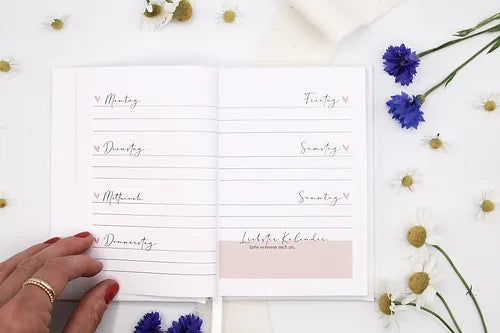 Montag
Dienstag
Mittwoch
Donnerstag
Freitag
Samstag
Sonntag
Liebster Kalender,
bitte erinnere mich an...